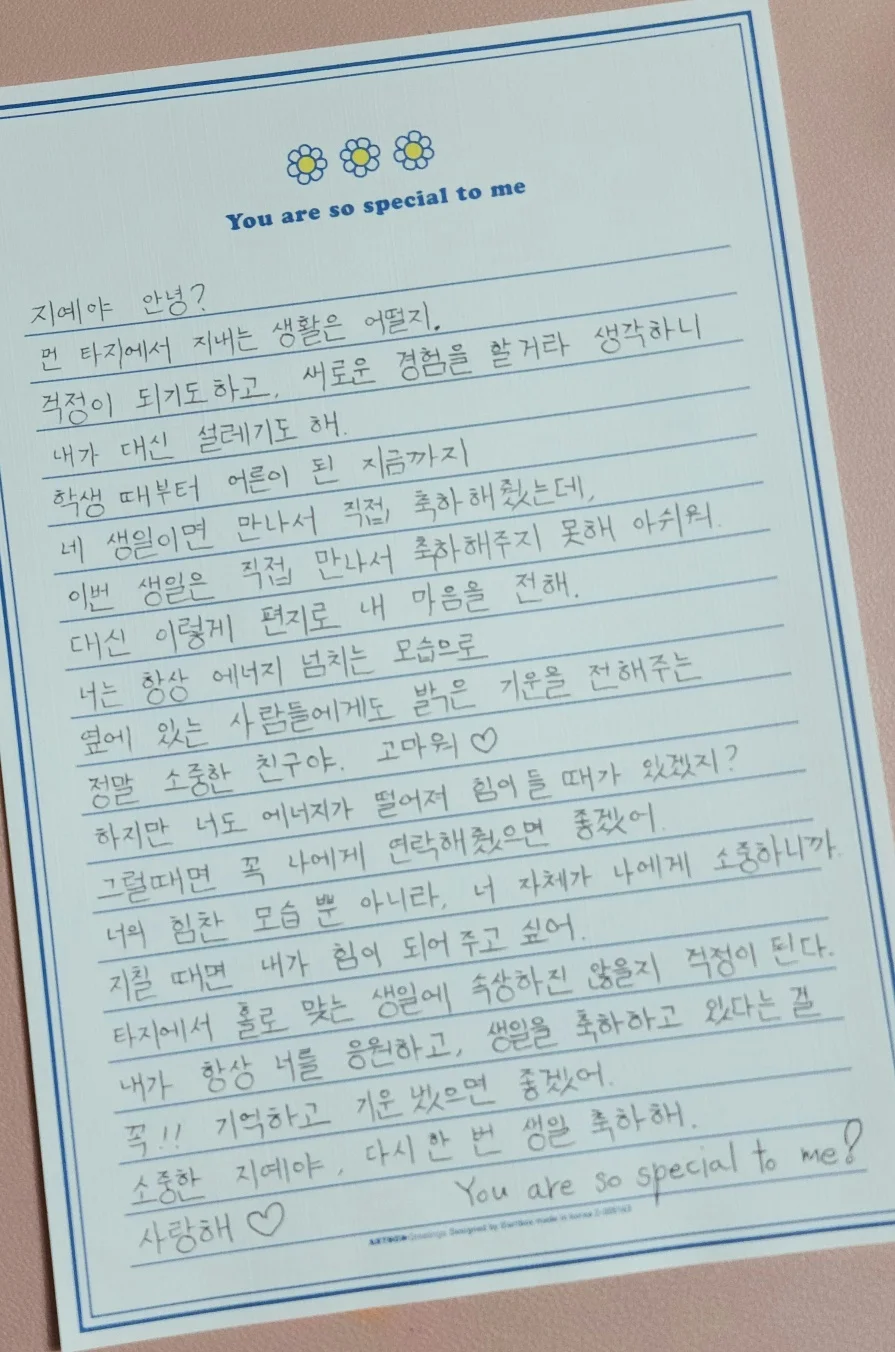 You are so special to me
지예야 안녕?
먼 타지에서 지내는 생활은 어떨지.
걱정이 되기도하고, 새로운 경험을 할거라 생각하니
내가 대신 설레기도 해.
학생 때부터 어른이 된 지금까지
네 생일이면 만나서 직접 축하해줬는데,
이번 생일은 직접 만나서 축하해주지 못해 아쉬워.
대신 이렇게 편지로 내 마음을 전해.
너는 항상 에너지 넘치는 모습으로
옆에 있는 사람들에게도 밝은 기운을 전해주는
정말 소중한 친구야. 고마워 ♡
하지만 너도 에너지가 떨어져 힘이들 때가 있겠지?
그럴때면 꼭 나에게 연락해줬으면 좋겠어.
너의 힘찬 모습 뿐 아니라, 너 자체가 나에게 소중하니까.
지칠 때면 내가 힘이 되어주고 싶어.
타지에서 홀로 맞는 생일에 속상하진 않을지 걱정이 된다.
내가 항상 너를 응원하고, 생일을 축하하고 있다는 걸
꼭!! 기억하고 기운냈으면 좋겠어.
소중한 지예야, 다시한 번 생일 축하해.
사랑해 ♡ You are so special to me!